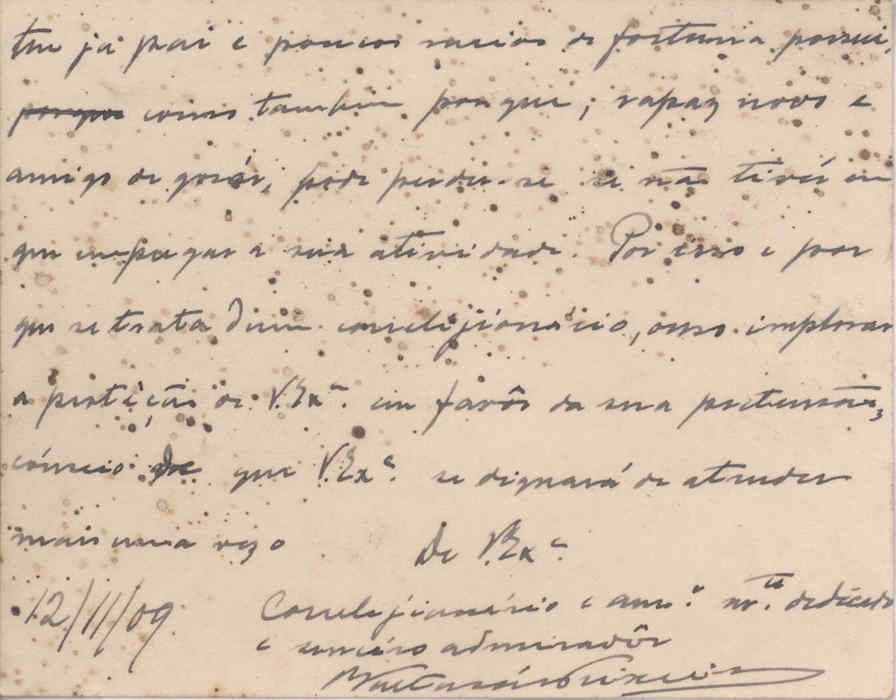 tem já pai e poucos meios de fortuna possui,
porque como tambem porque, rapaz novo e
amigo de gosár, pode perder-se se não tivér em
que empregar a sua atividade. Por isso e por
que se trata dum correligionário, ouso implorar
a protéção de V. Exª. em favôr da sua pretensão,
cónscio de que V. Exª. se dignará de atender
mais uma vez o
De V. Exª.
12/11/09.
Correligionário e amº. mtº. dedicado
e sincéro admiradôr